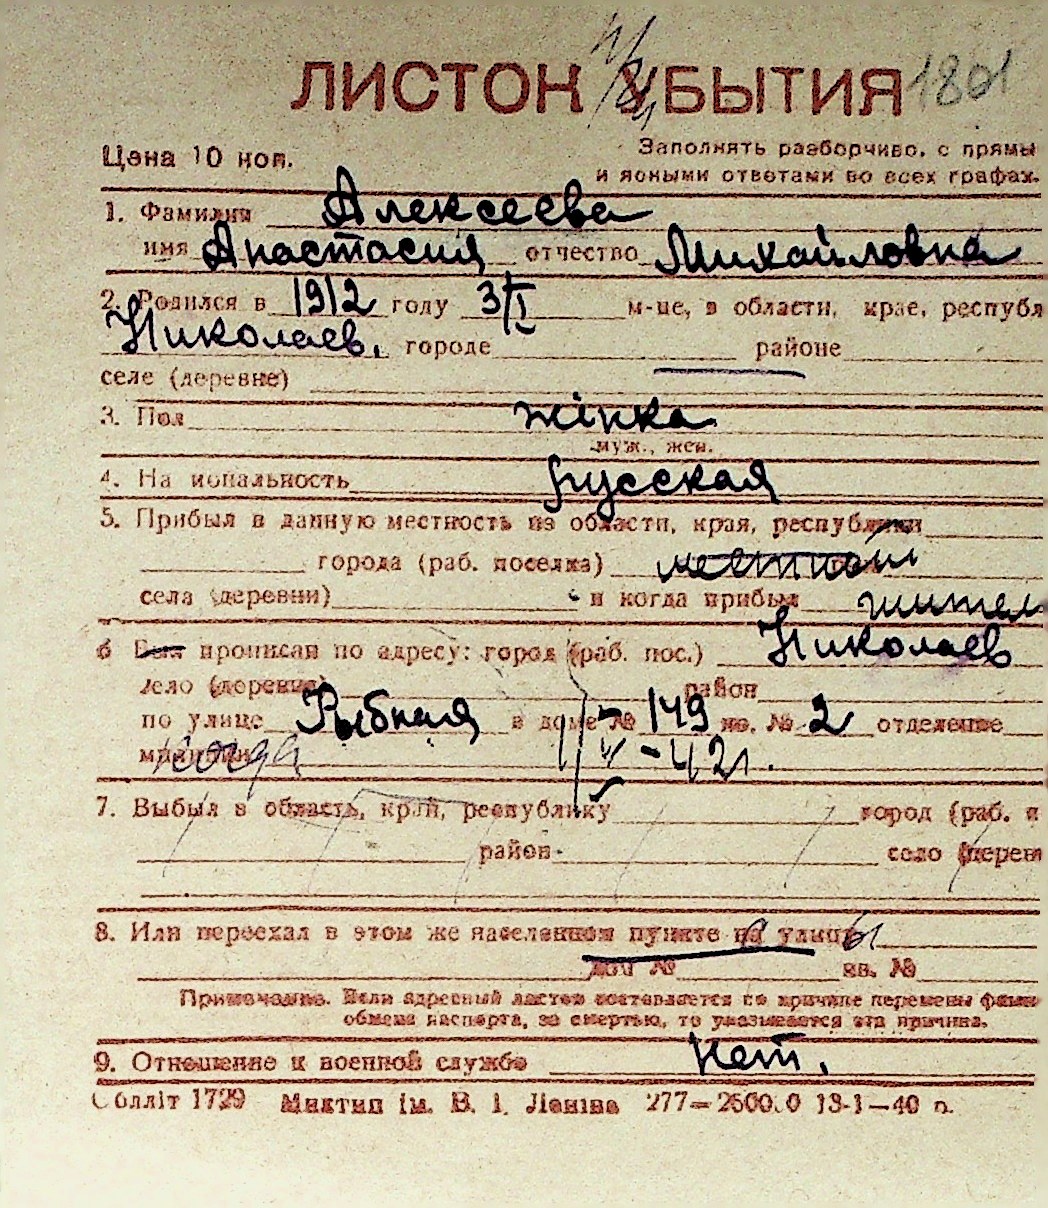 ЛИСТОК УБЫТИЯ 1801
Цена 10 коп.
Заполнять разборчиво, с прямы
и ясными ответами во всех графах.
1. Фамилия Алексеева
имя Анастасия отчество Михайловна
2. Родился в 1912 году 3/I м-це, в области, крае, республ
Николаев. городе районе
селе (деревне)
3. Пол жінка
муж., жен.
4. Национальность русская
5. Прибыл в данную местность из области, края, республики
города (раб. поселка) местный
села (деревни) и когда прибыл жител
6 Был прописан по адресу: город (раб. пос.) Николаев
село (деревня) район
по улице Рыбная в доме № 149 кв. № 2 отделение
милиции когда 42г.
7. Выбыл в область, край, республику город (раб. п
район село (дерев
8. Или переехал в этом же населенном пункте на улицу
дом № кв. №
Примечание. Если адресный листок составляется по причине перемены фами
обмена паспорта, за смертью, то указывается эта причина.
9. Отношение к военной службе Нет.
Облліт 1729 Миктип ім. В. І. Леніна 277—25000 13-1—40 р.